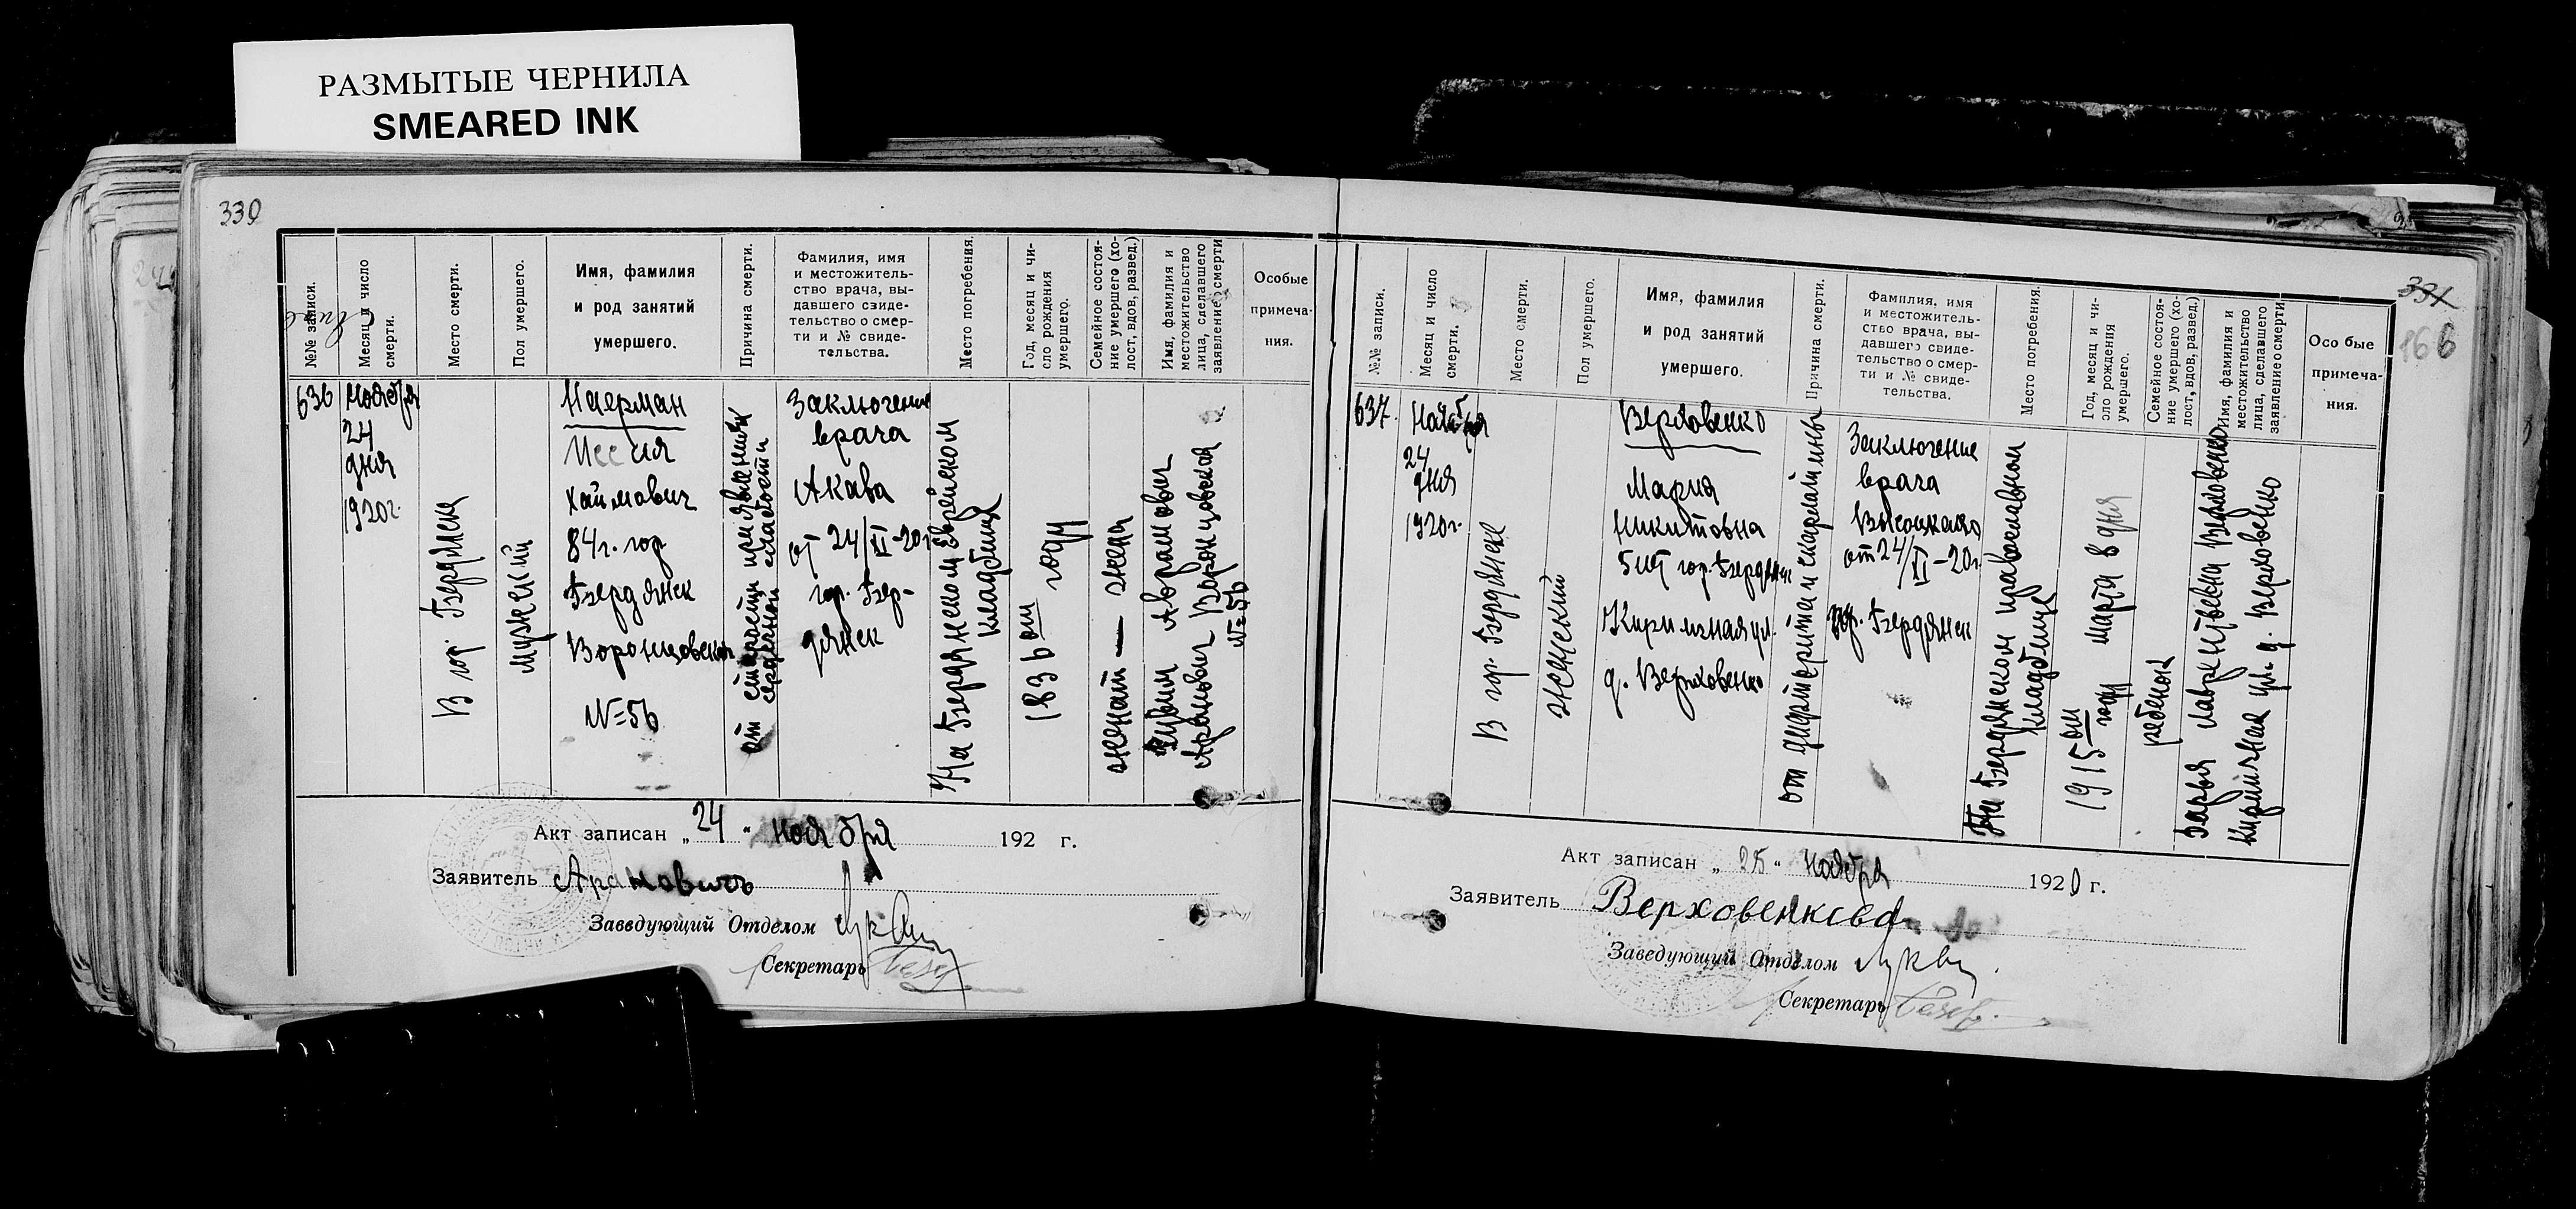 РАЗМЫТЫЕ ЧЕРНИЛА
SMEARED INK
330
№№ записи.
Месяц и число
смерти.
Место смерти.
Пол умершего.
Имя, фамилия
и род занятий
умершего.
Причина смерти.
Фамилия, имя
и местожитель-
ство врача, вы-
давшего свиде-
тельство о смер-
ти и № свиде-
тельства.
Место погребения.
Год, месяц и чи-
сло рождения
умершего.
Семейное состоя-
ние умершего (хо-
лост, вдов, развед.)
Имя, фамилия и
местожительство
лица, сделавшего
заявление о смерти
Особые
примеча-
ния.
636
Ноября
24
дня
1920г.
В гор. Бердянске
мужеский
Наерман
Хаймович
84г. гор
Бердянск
Воронцовская
№=56
от старости при явлениях
сердечной слабости
Заключение
врача
Акава
от 24/XI-20г
гор. Бер-
дянск
На Бердянском Еврейском
кладбище
1836 ом году
женат — жена
Абрамович
Воронцовская
№=56
Акт записан „24“ ноября 192 г.
Заявитель
Заведующий Отделом
Секретарь
331
166
№№ записи.
Месяц и число
смерти.
Место смерти.
Пол умершего.
Имя, фамилия
и род занятий
умершего.
Причина смерти.
Фамилия, имя
и местожитель-
ство врача, вы-
давшего свиде-
тельство о смер-
ти и № свиде-
тельства.
Место погребения.
Год, месяц и чи-
сло рождения
умершего.
Семейное состоя-
ние умершего (хо-
лост, вдов, развед.)
Имя, фамилия и
местожительство
лица, сделавшего
заявление о смерти
Осо бые
примеча-
ния.
637.
Ноября
24
дня
1920г.
В гор. Бердянске
женский
Верховенко
Мария
Никитовна
5 лет гор. Бердянск
Кирпичная ул.
д. Верховенко
от дифтерита и скарлатины
Заключение
врача
Высоцкаго
от 24/XI-20г.
гор. Бердянск
На Бердянском православном
кладбище
1915 ом году марта 8 дня
ребенок
Дарья Лаврентьевна Верховенко
Кирпичная ул. д. Верховенко
Акт записан „25“ ноября 1920 г.
Заявитель Верховенкова
Заведующий Отделом
Секретарь